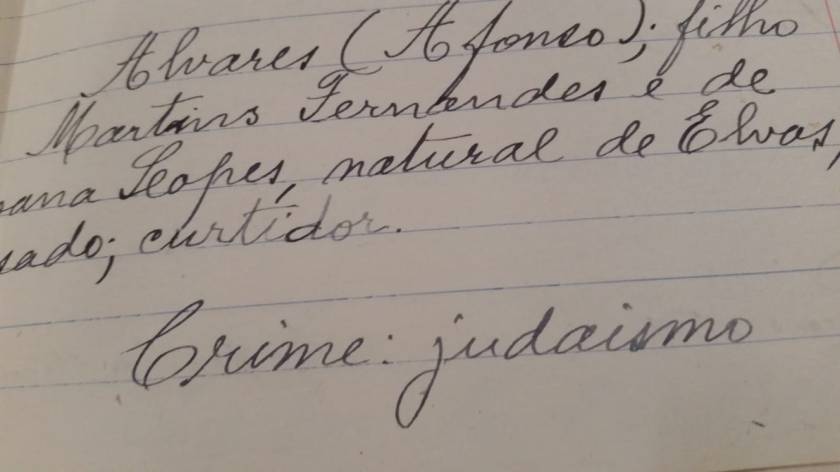 Alvares (Afonso); filho
Martins Fernandes e de
Lopes, natural de Elvas,
curtidor.
Crime: judaismo